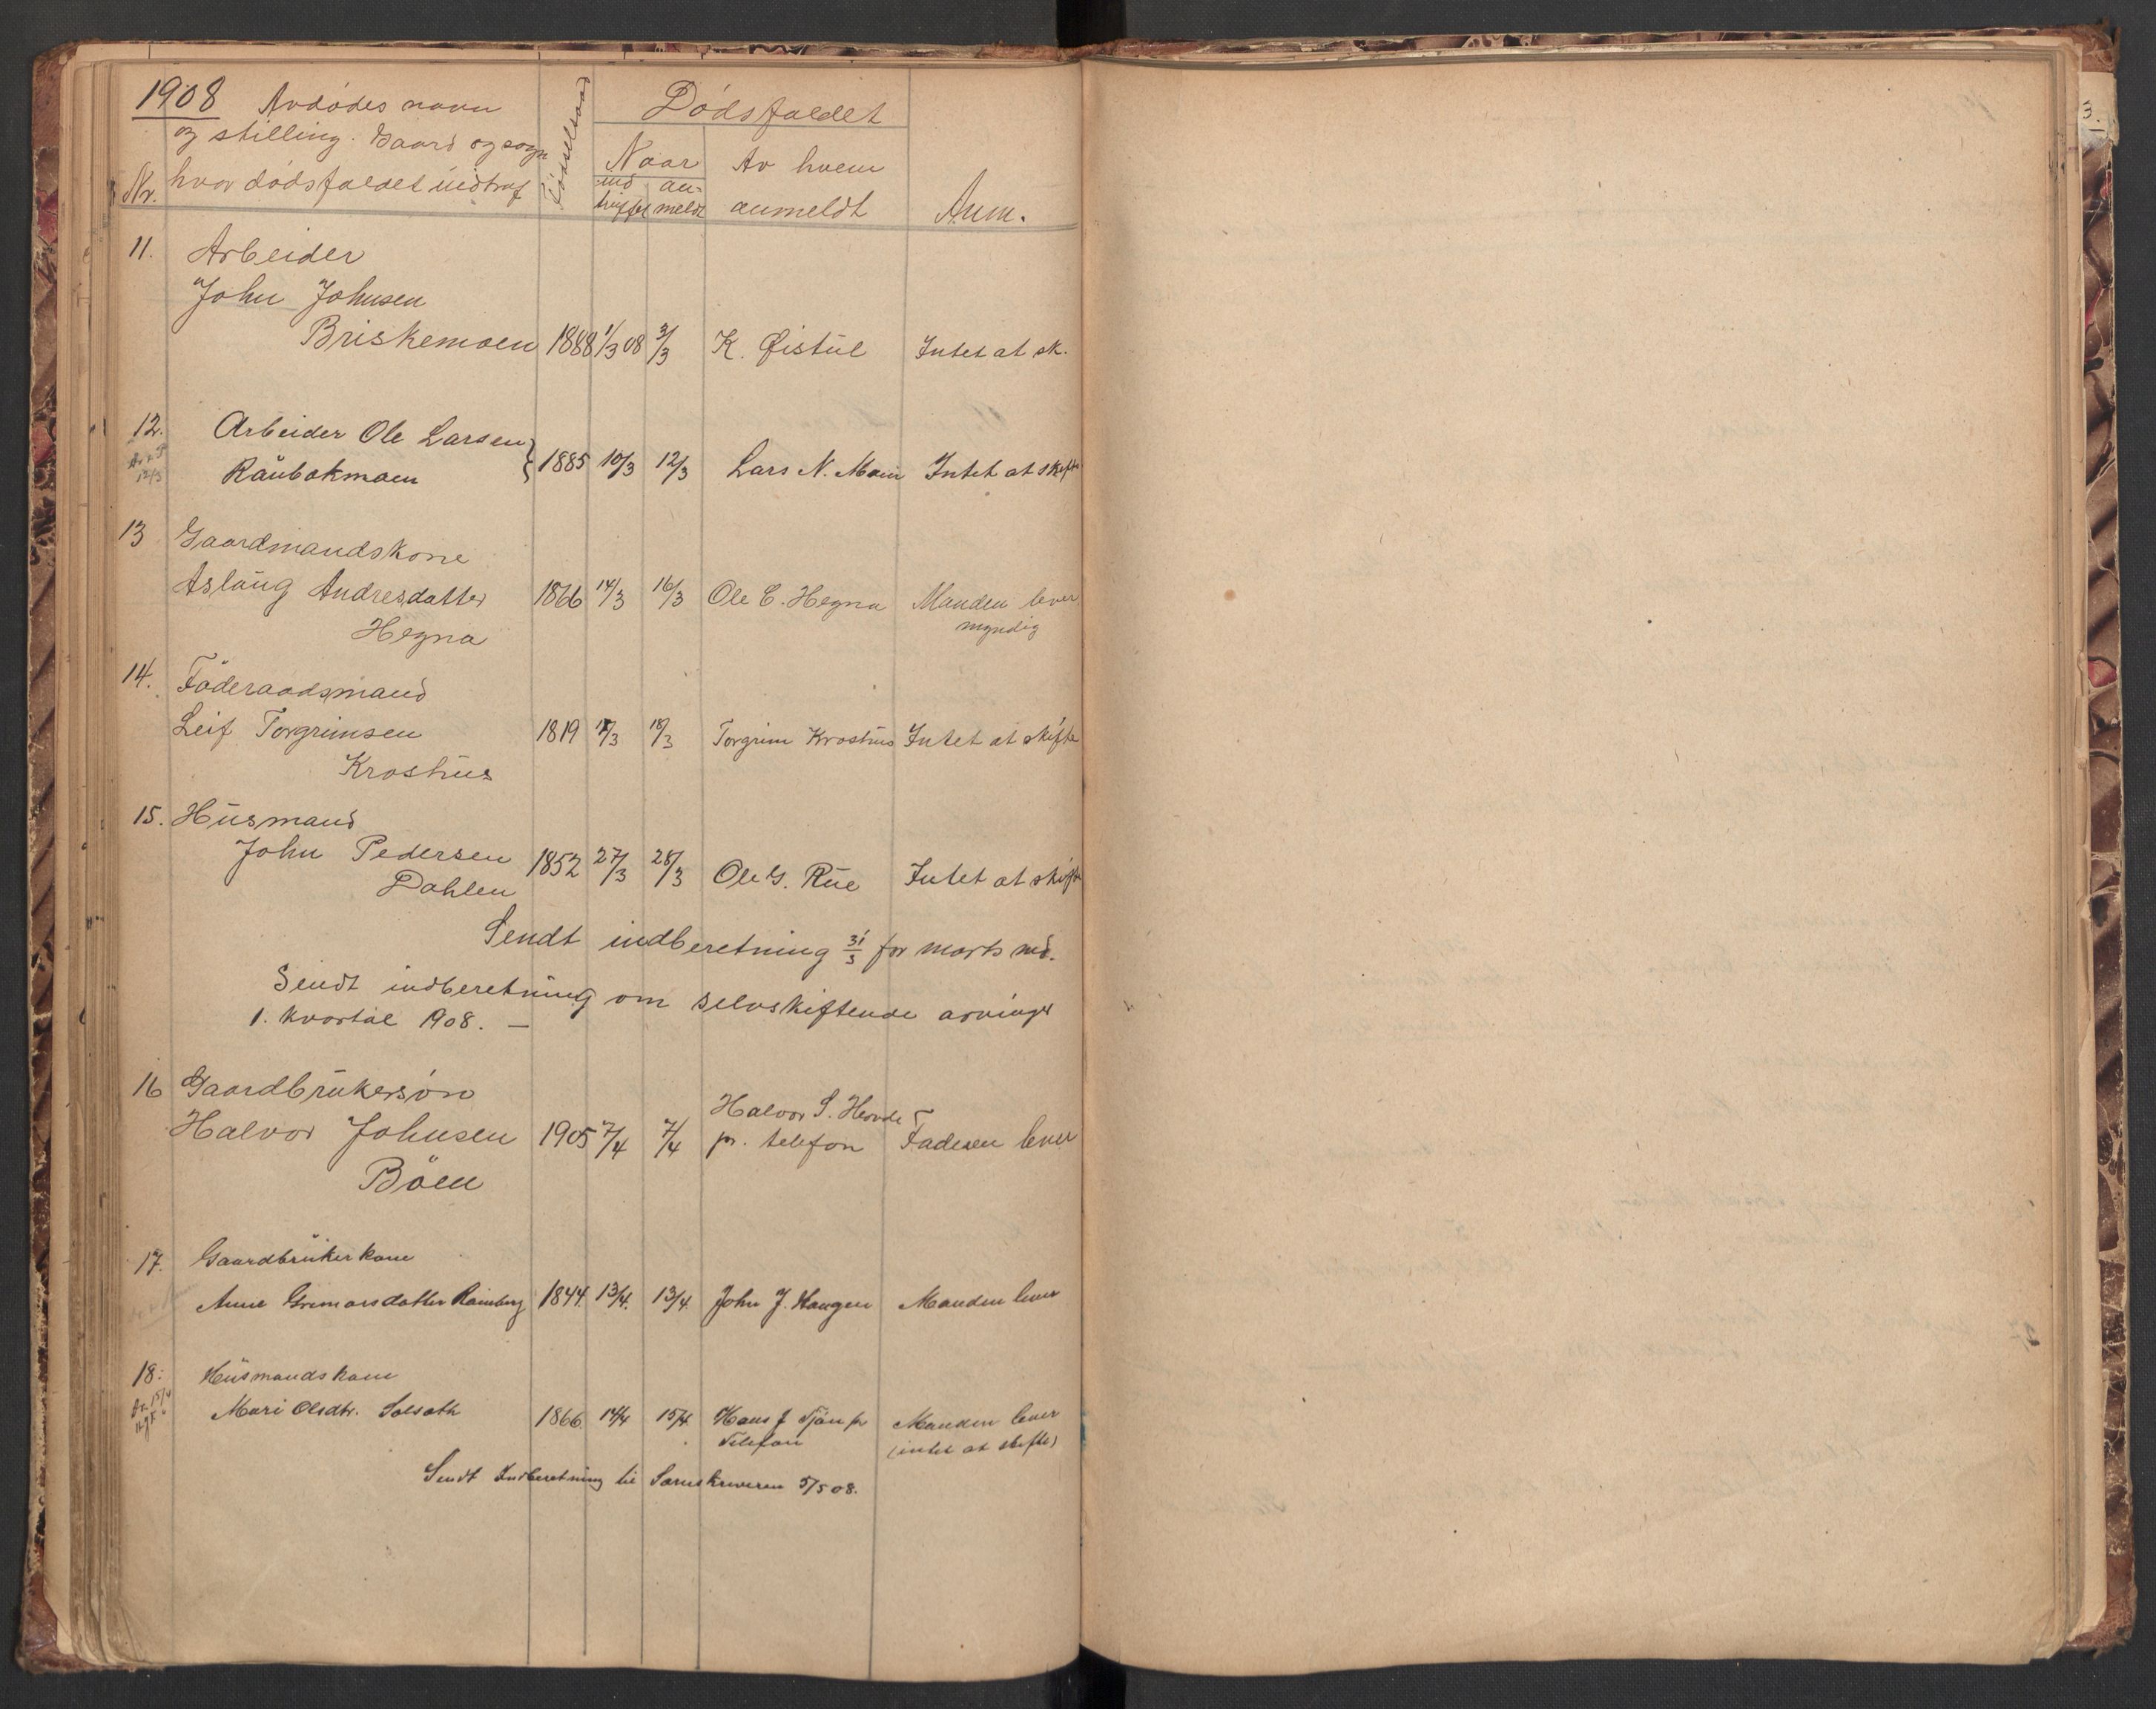 1908 Avdødes navn
og stilling. Gaard og sogn
Nr. hvor dødsfaldet indtraf
Fødselsaar
Dødsfaldet
Naar
indtruffet
anmeldt
Av hvem
anmeldt
Anm.
11. Arbeider
John Johnsen
Briskemoen 1888 1/3 08 3/3 K. Øistul Intet at sk.
12. Arbeider Ole Larsen
Raubakmoen 1885 10/3 12/3 Lars N. Moen Intet at skifte
13 Gaardmandskone
Aslaug Andresdatter 1866 14/3 16/3 Ole C. Hegna Manden lever
myndig
Hegna
14. Föderaadsmand
Leif Torgrimsen 1819 /3 18/3 Torgrim Kroshus Intet at skifte
Kroshus
15. Husmand
John Pedersen
Dahlen 1852 27/3 28/3 Ole G. Rue Intet at skifte
Sendt indberetning 31/3 for marts md.
Sendt indberetning om selvskiftende arvinger
1. kvartal 1908. —
16 Gaardbrukersøn
Halvor Johnsen 1905 7/4 7/4 Halvor S. Hovde
pr. telefon Faderen lever
Böen
17. Gaardbrukerkone
Anne Gremarsdatter Ramberg 1844. 13/4. 13/4 John J. Haugen Manden lever
18: Husmandskone
Mari Olsdtr. 1866. 14/4 15/4 Hans J Tjön pr
Telefon
Manden lever
(intet at skifte)
Sendt Indberetning til Sorenskriveren 5/5 08.